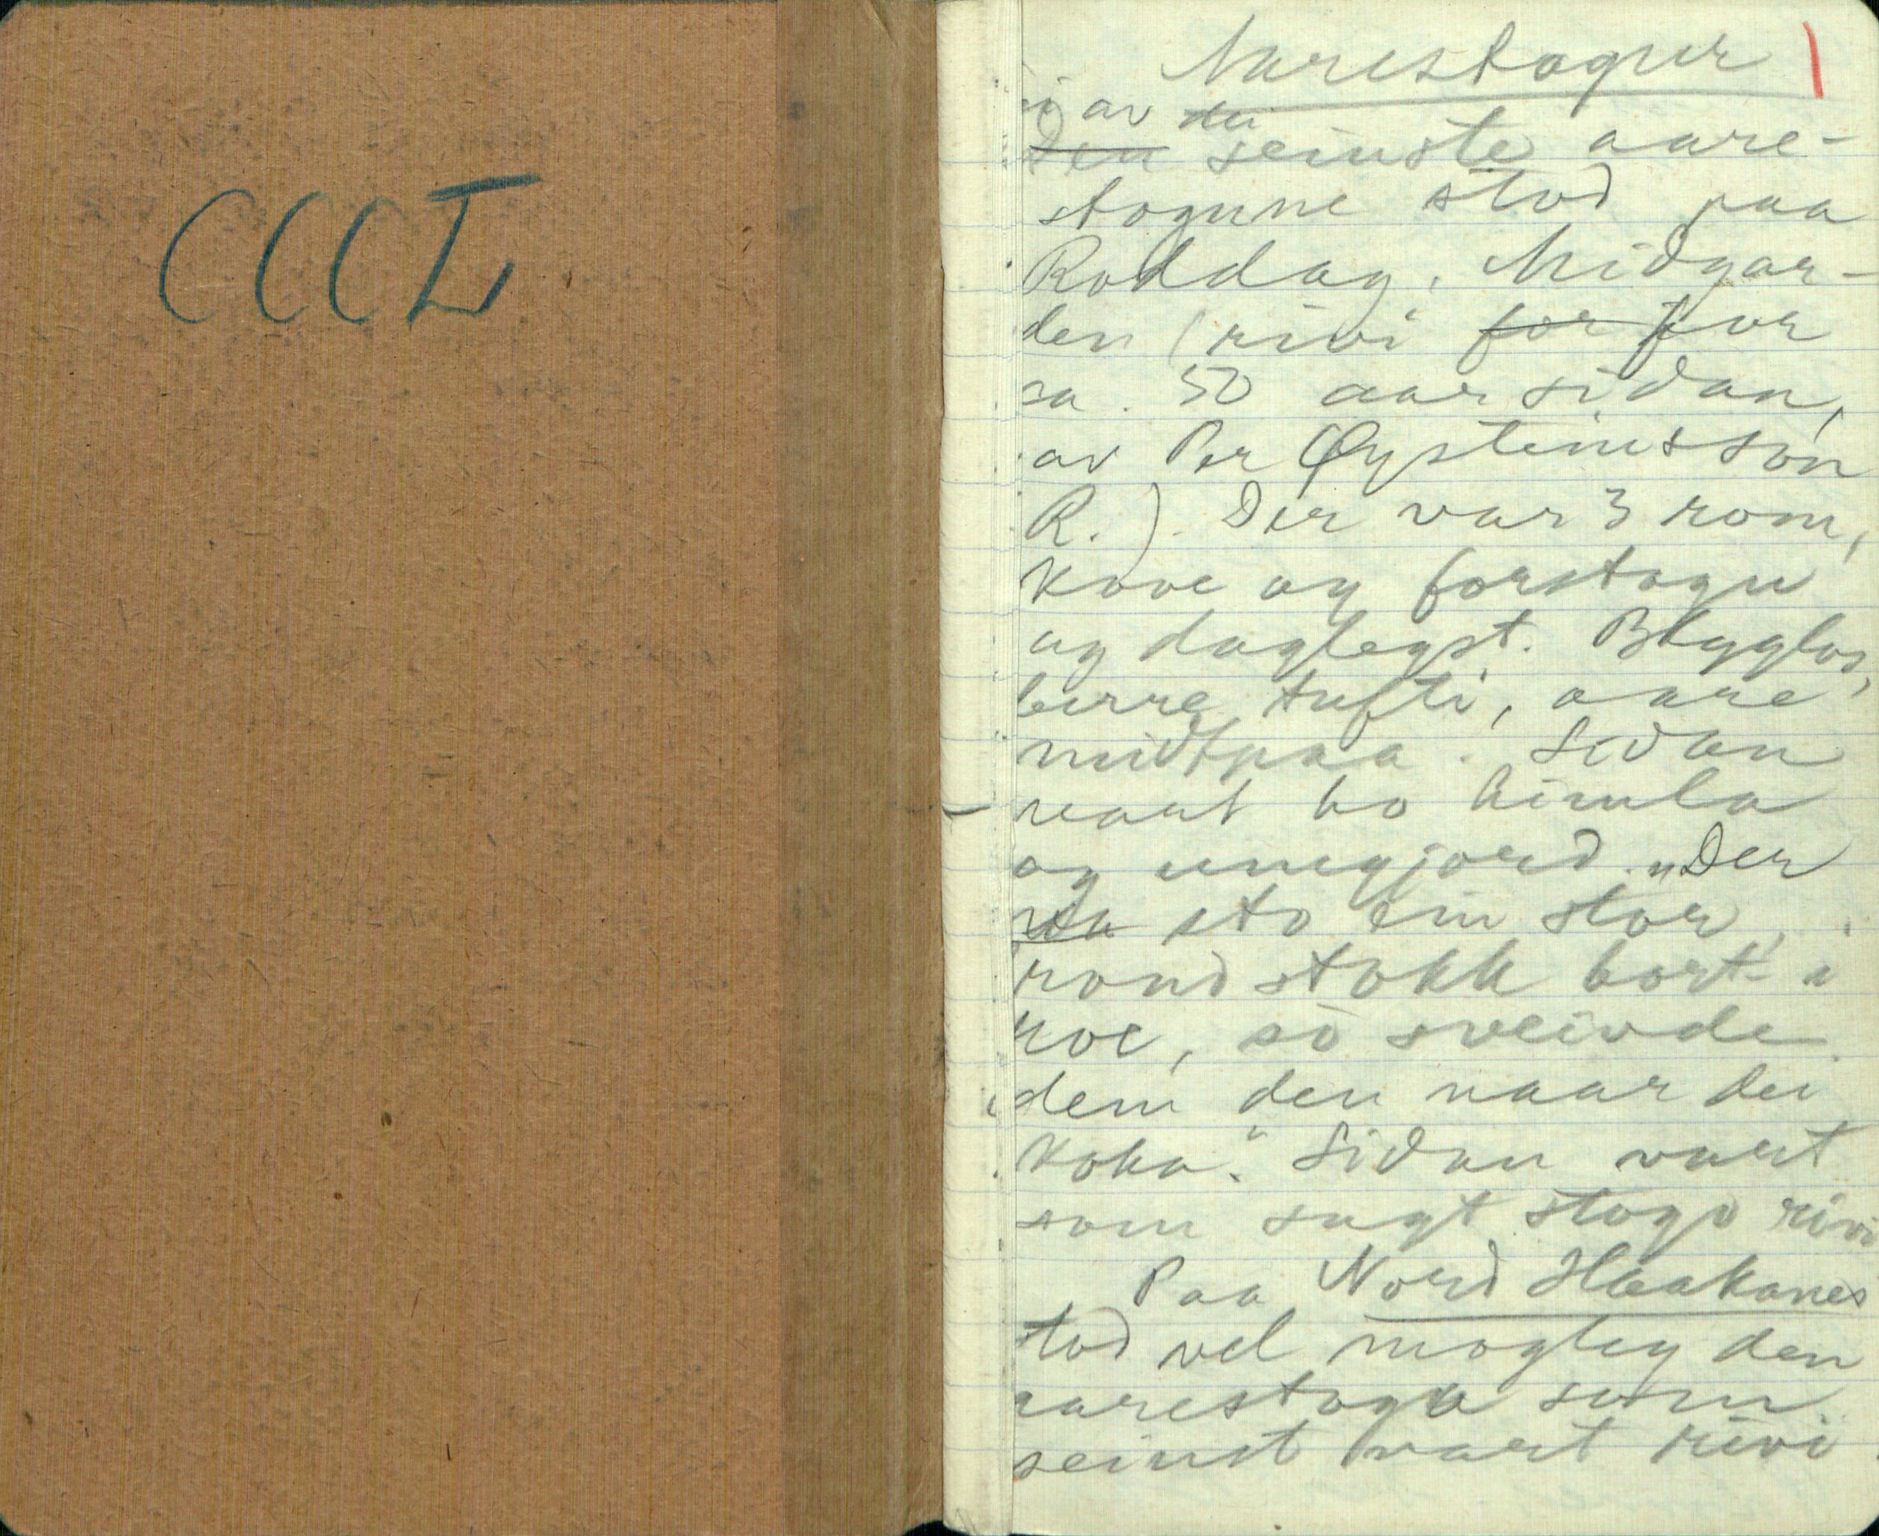 CCCL
Aarestogur
1
ei av dei
Den seinste aare-
stogune stod paa
Roddag, Midgar-
den (rivi for for
ca. 50 aar sidan,
av Per Øysteinsson
R.). Der var 3 rom,
kove og forstogu
og daglegst.
berre tufti, aare
midtpaa. Sidan
vart ho himla
og umgjord. „Der
sto ein stor,
rond stokk bort i
roe, so sveivde
dem den naar dei
koka." Sidan vart
som sagt stogo rivi
Paa Nord Haakanes
stod vel mogleg den
aarestoga som
seinst vart rivi